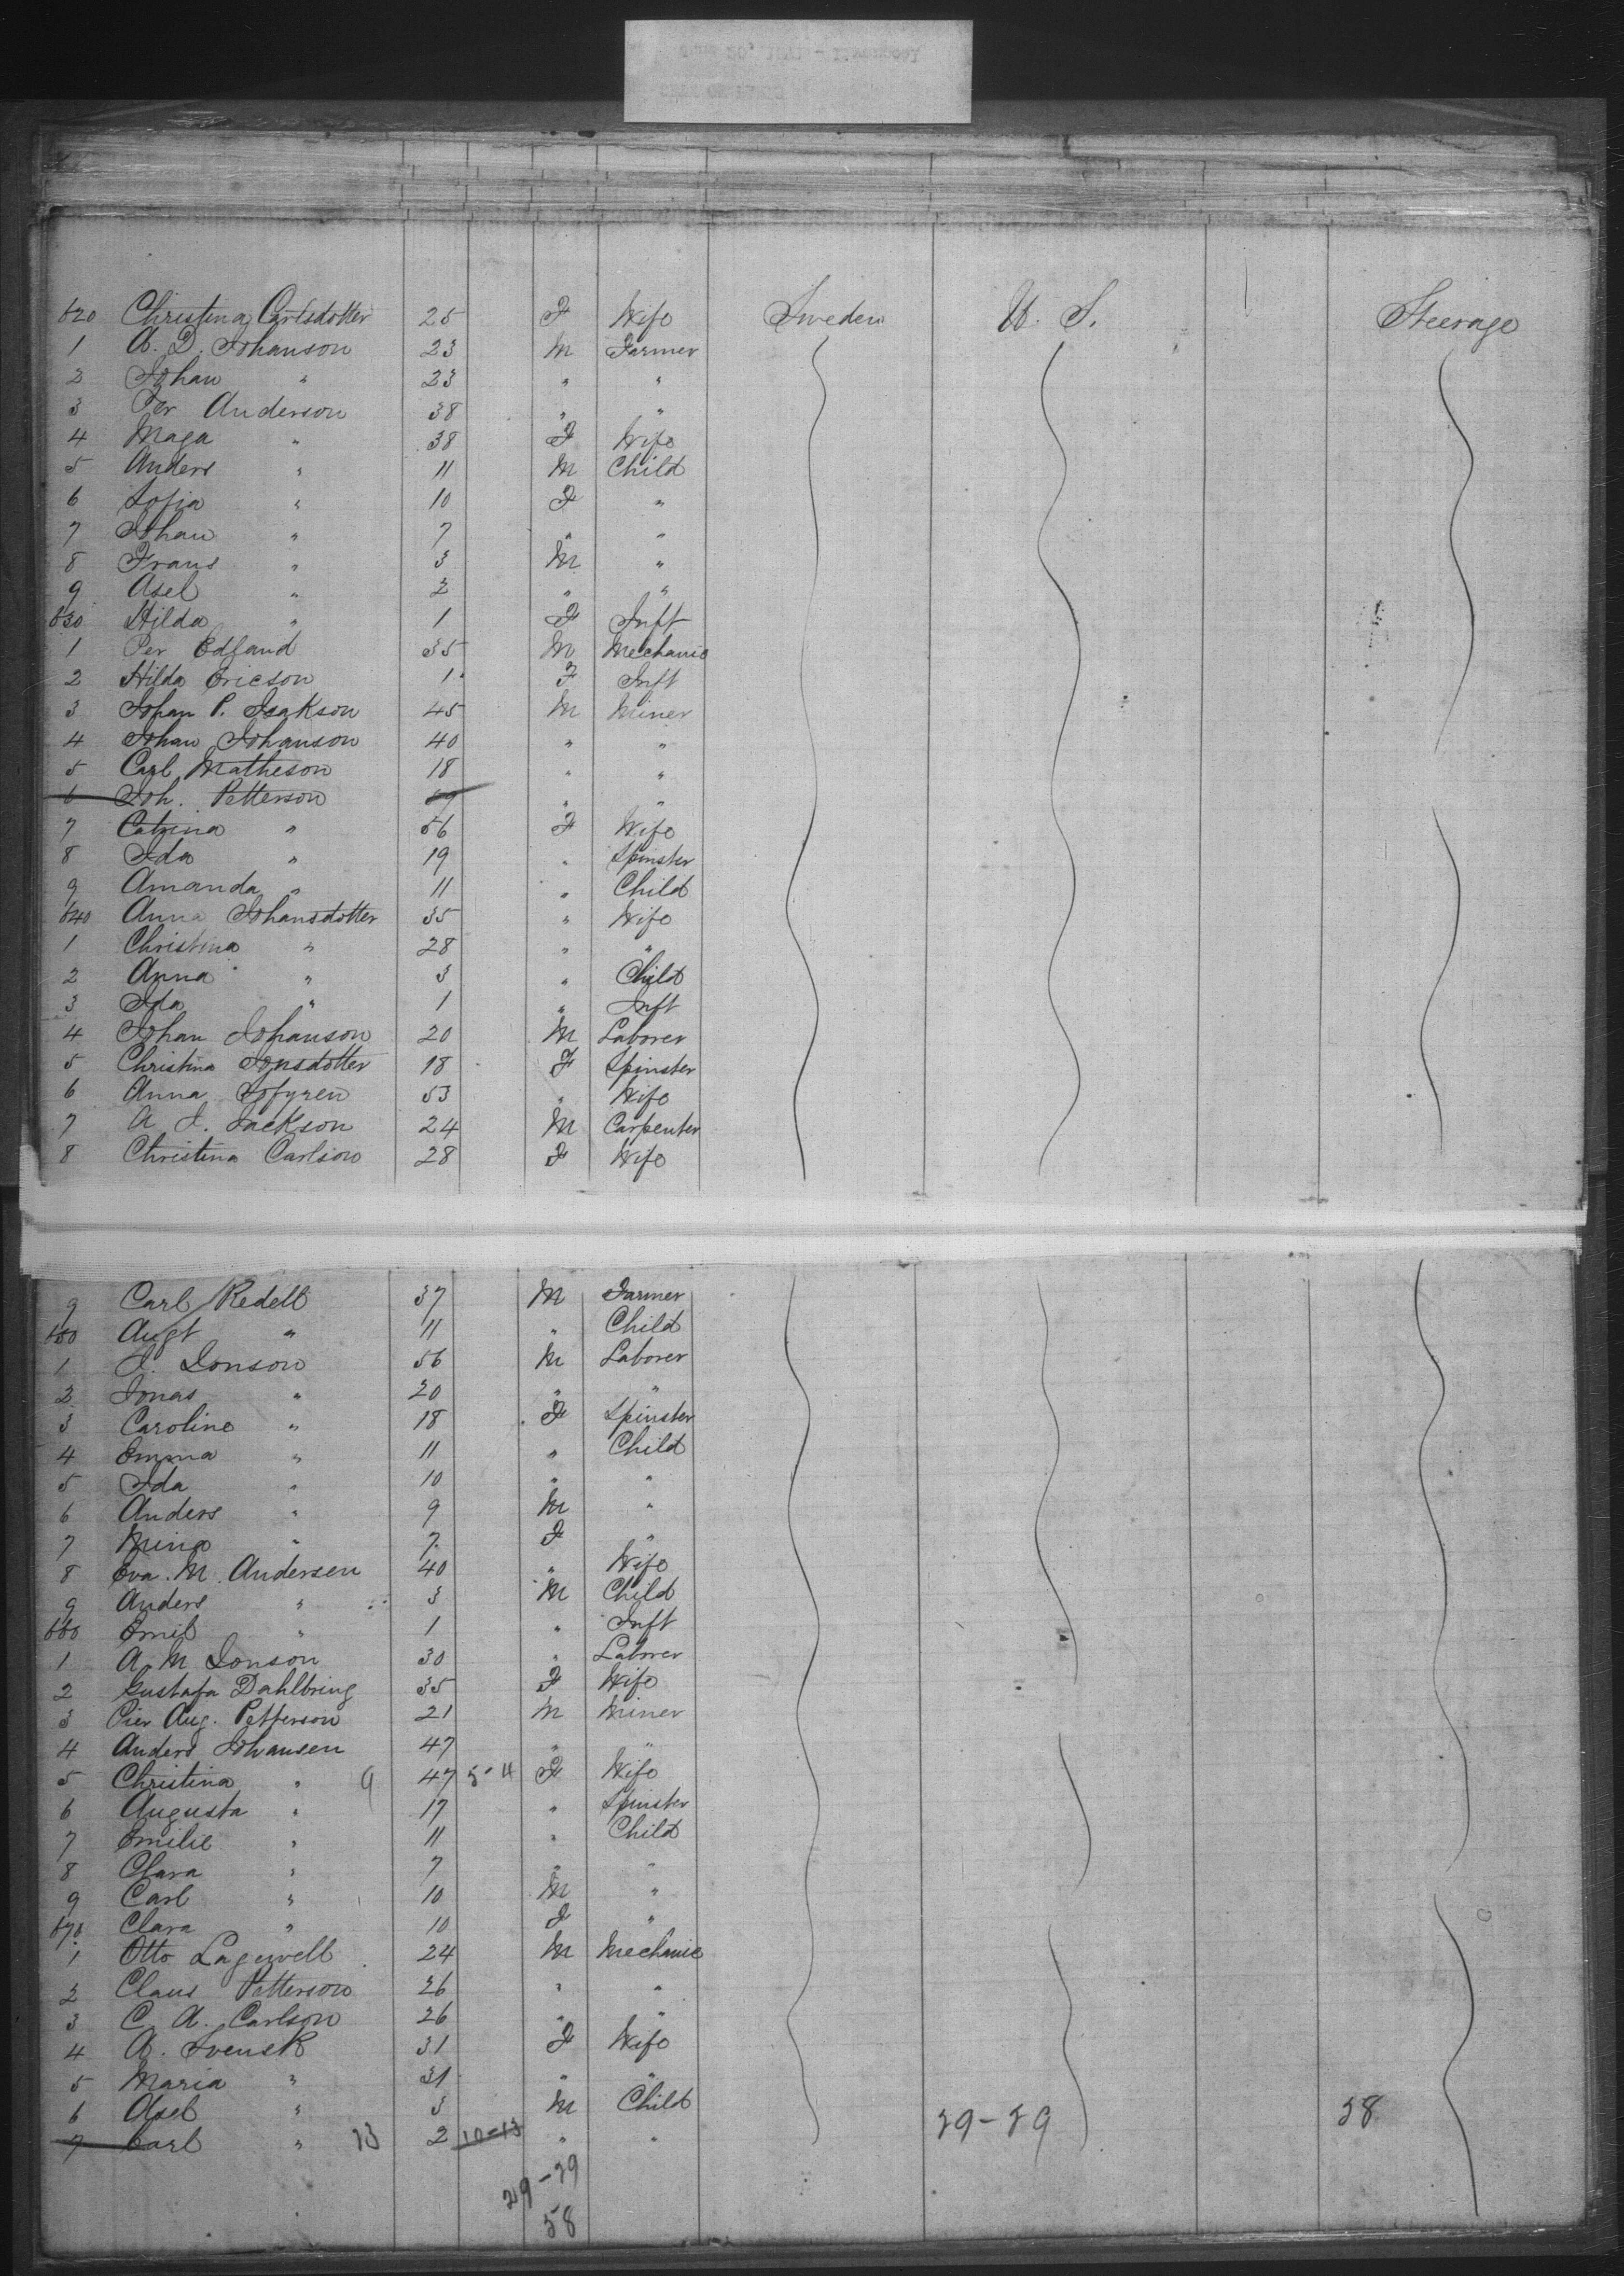 820 Christina Carlsdotter 25 F Wife Sweden U. S. Steerage
1 A. D. Johanson 23 M Farmer
2 Johan " 23 " "
3 Per Anderson 38 " "
4 Maga " 38 F Wife
5 Anders " 11 M Child
6 Sofia " 10 F "
7 Johan " 7 " "
8 Frans " 3 M "
9 Axel " 2 " "
830 Hilda " 1 F Inft
1 Per Edland 35 M Mechanic
2 Hilda Ericson 1 F Inft
3 Johan P. Isakson 45 M Miner
4 Johan Johanson 40 " "
5 Carl Matheson 18 " "
6 Joh. Petterson 59 " "
7 Catrina " 56 F Wife
8 Ida " 19 " Spinster
9 Amanda " 11 " Child
840 Anna Johansdotter 35 " Wife
1 Christina " 28 " "
2 Anna " 3 " Child
3 Ida " 1 " Inft
4 Johan Johanson 20 M Laborer
5 Christina Jonsdotter 18 F Spinster
6 Anna Sofyren 53 " Wife
7 A. J. Jackson 24 M Carpenter
8 Christina Carlson 28 F Wife
9 Carl Redell 37 M Farmer
850 Augt " 11 " Child
1 J. Jonson 56 M Laborer
2 Jonas " 20 " "
3 Caroline " 18 F Spinster
4 Emma " 11 " Child
5 Ida " 10 " "
6 Anders " 9 M "
7 Mina " 7 F "
8 Eva. M. Andersen 40 " Wife
9 Anders " 3 M Child
860 Emil " 1 " Inft
1 A. M Jonson 30 " Laborer
2 Gustafa Dahlbring 35 F Wife
3 Pier Aug. Petterson 21 M Miner
4 Anders Johansen 47 " "
5 Christina " 9 47 5-4 F Wife
6 Augusta " 17 " Spinster
7 Emilie " 11 " Child
8 Clara " 7 " "
9 Carl " 10 M "
870 Clara " 10 F "
1 Otto Lagervell 24 M Mechanic
2 Claus Petterson 26 " "
3 C. A. Carlson 26 " "
4 A. Svensk 31 F Wife
5 Maria " 31 " "
6 Axel " 3 M Child
7 Carl " 23 2 10-13 " " 29-29 58
29-29
58